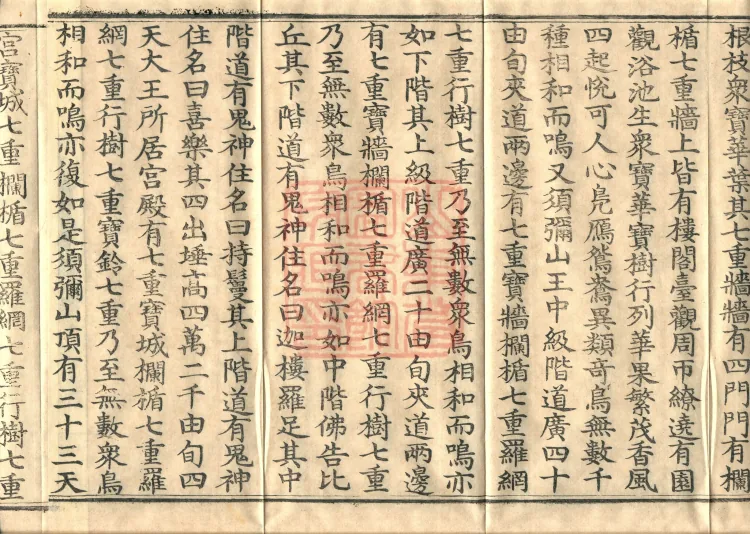 根枝衆寶華葉其七重牆牆有四門門有欄
楯七重牆上皆有樓閣臺觀周帀繚遶有園
觀浴池生衆寶華寶樹行列華果繁茂香風
四起悅可人心鳧鴈鴛鴦異類奇鳥無數千
種相和而鳴又須彌山王中級階道廣四十
由旬夾道兩邊有七重寶牆欄楯七重羅網
七重行樹七重乃至無數衆鳥相和而鳴亦
如下階其上級階道廣二十由旬夾道兩邊
有七重寶牆欄楯七重羅網七重行樹七重
乃至無數衆鳥相和而鳴亦如中階佛告比
丘其下階道有鬼神住名曰迦樓羅足其中
階道有鬼神住名曰持鬘其上階道有鬼神
住名曰喜樂其四出埵高四萬二千由旬四
天大王所居宮殿有七重寶城欄楯七重羅
網七重行樹七重寶鈴七重乃至無數衆鳥
相和而鳴亦復如是須彌山頂有三十三天
宮寶城七重欄楯七重羅網七重行樹七重